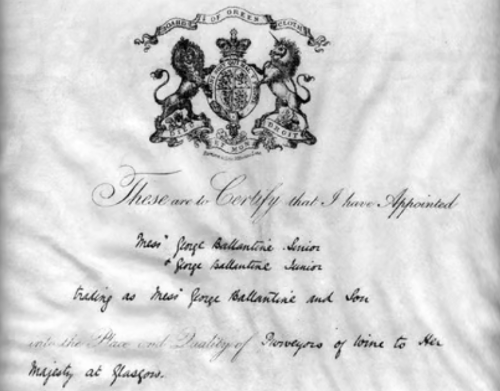 BOARD OF GREEN CLOTH
DIEU ET MON DROIT
These are to Certify that I have Appointed
Messrs George Ballantine Senior
& George Ballantine Junior
trading as Messrs George Ballantine and Son
into the Place and Quality of Purveyors of Wine to Her
Majesty at Glasgow.